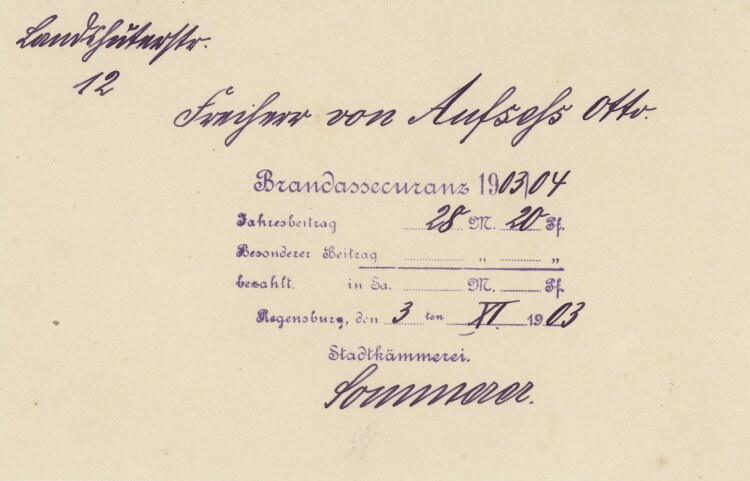 Landshuterstr.
12
Freiherr von Aufsehs Otto.
Brandassecuranz 1903/04
Jahresbeitrag 28 M. 20 Pf.
Besonderer Beitrag „ „
bezahlt. in Sa. M. Pf.
Regensburg, den 3 ten XI. 1903
Stadtkämmerei.
Sommerer.